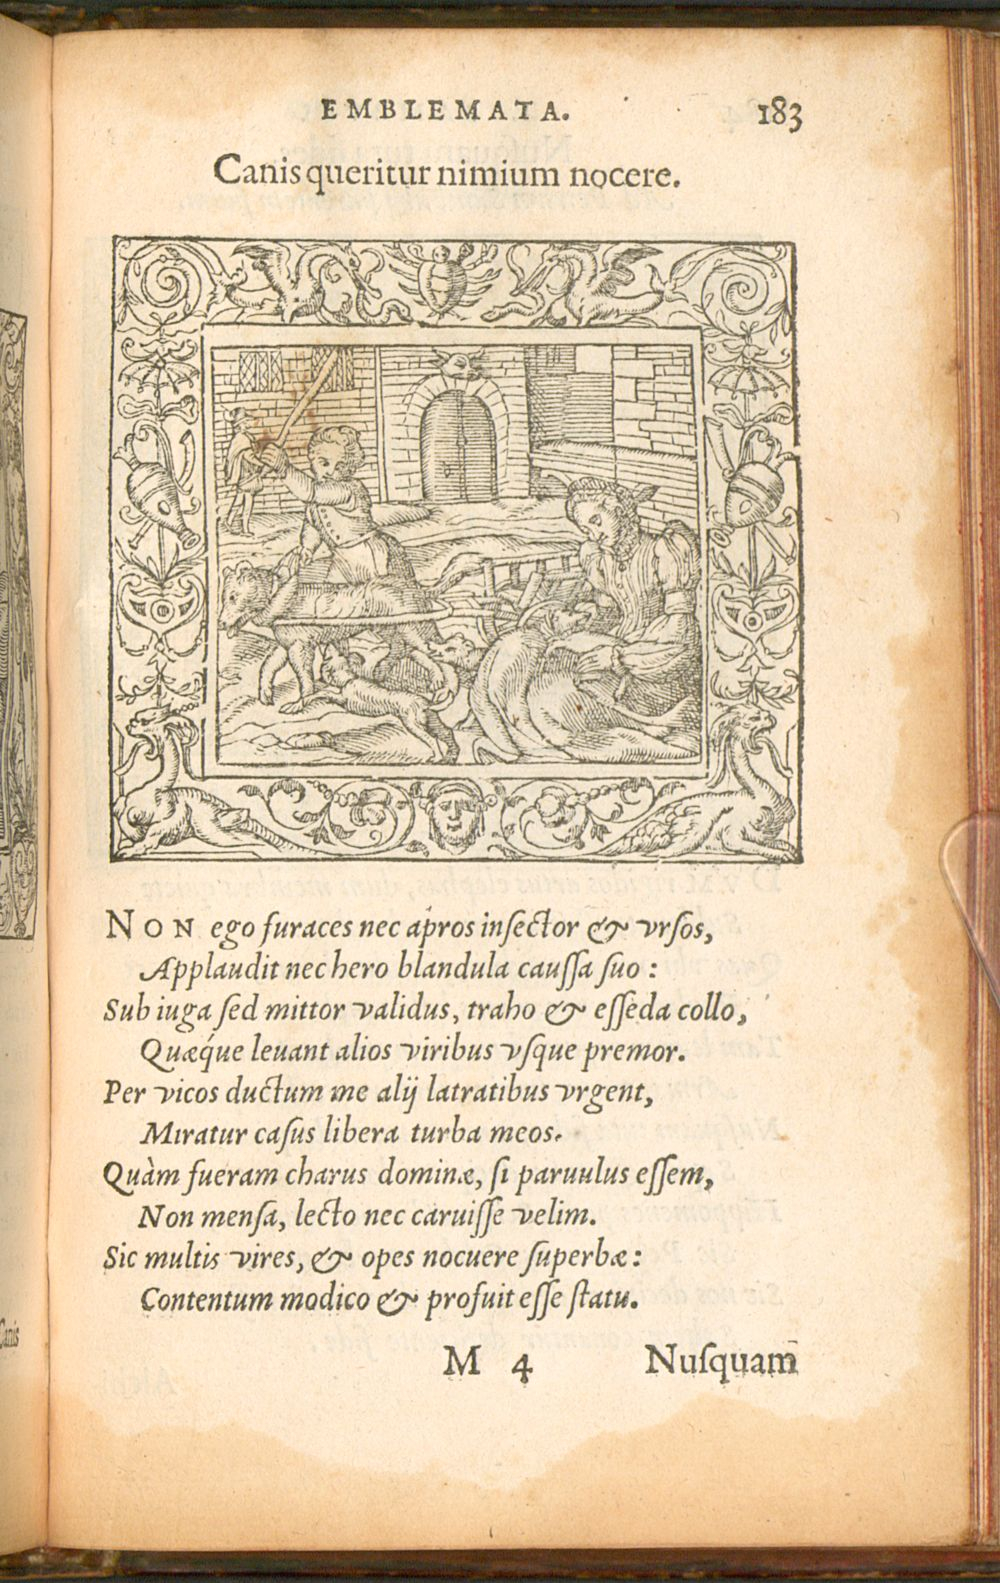 EMBLEMATA. 183
Canis queritur nimium nocere.
NON ego furaces nec apros insector & vrsos,
Applaudit nec hero blandula caussa suo:
Sub iuga sed mittor validus, traho & esseda collo,
Quæque leuant alios viribus vsque premor.
Per vicos ductum me alij latratibus vrgent,
Miratur casus libera turba meos.
Quàm fueram charus dominæ, si paruulus essem,
Non mensa, lecto nec caruisse velim.
Sic multis vires, & opes nocuere superbæ:
Contentum modico & profuit esse statu.
M 4 Nusquam
Canis